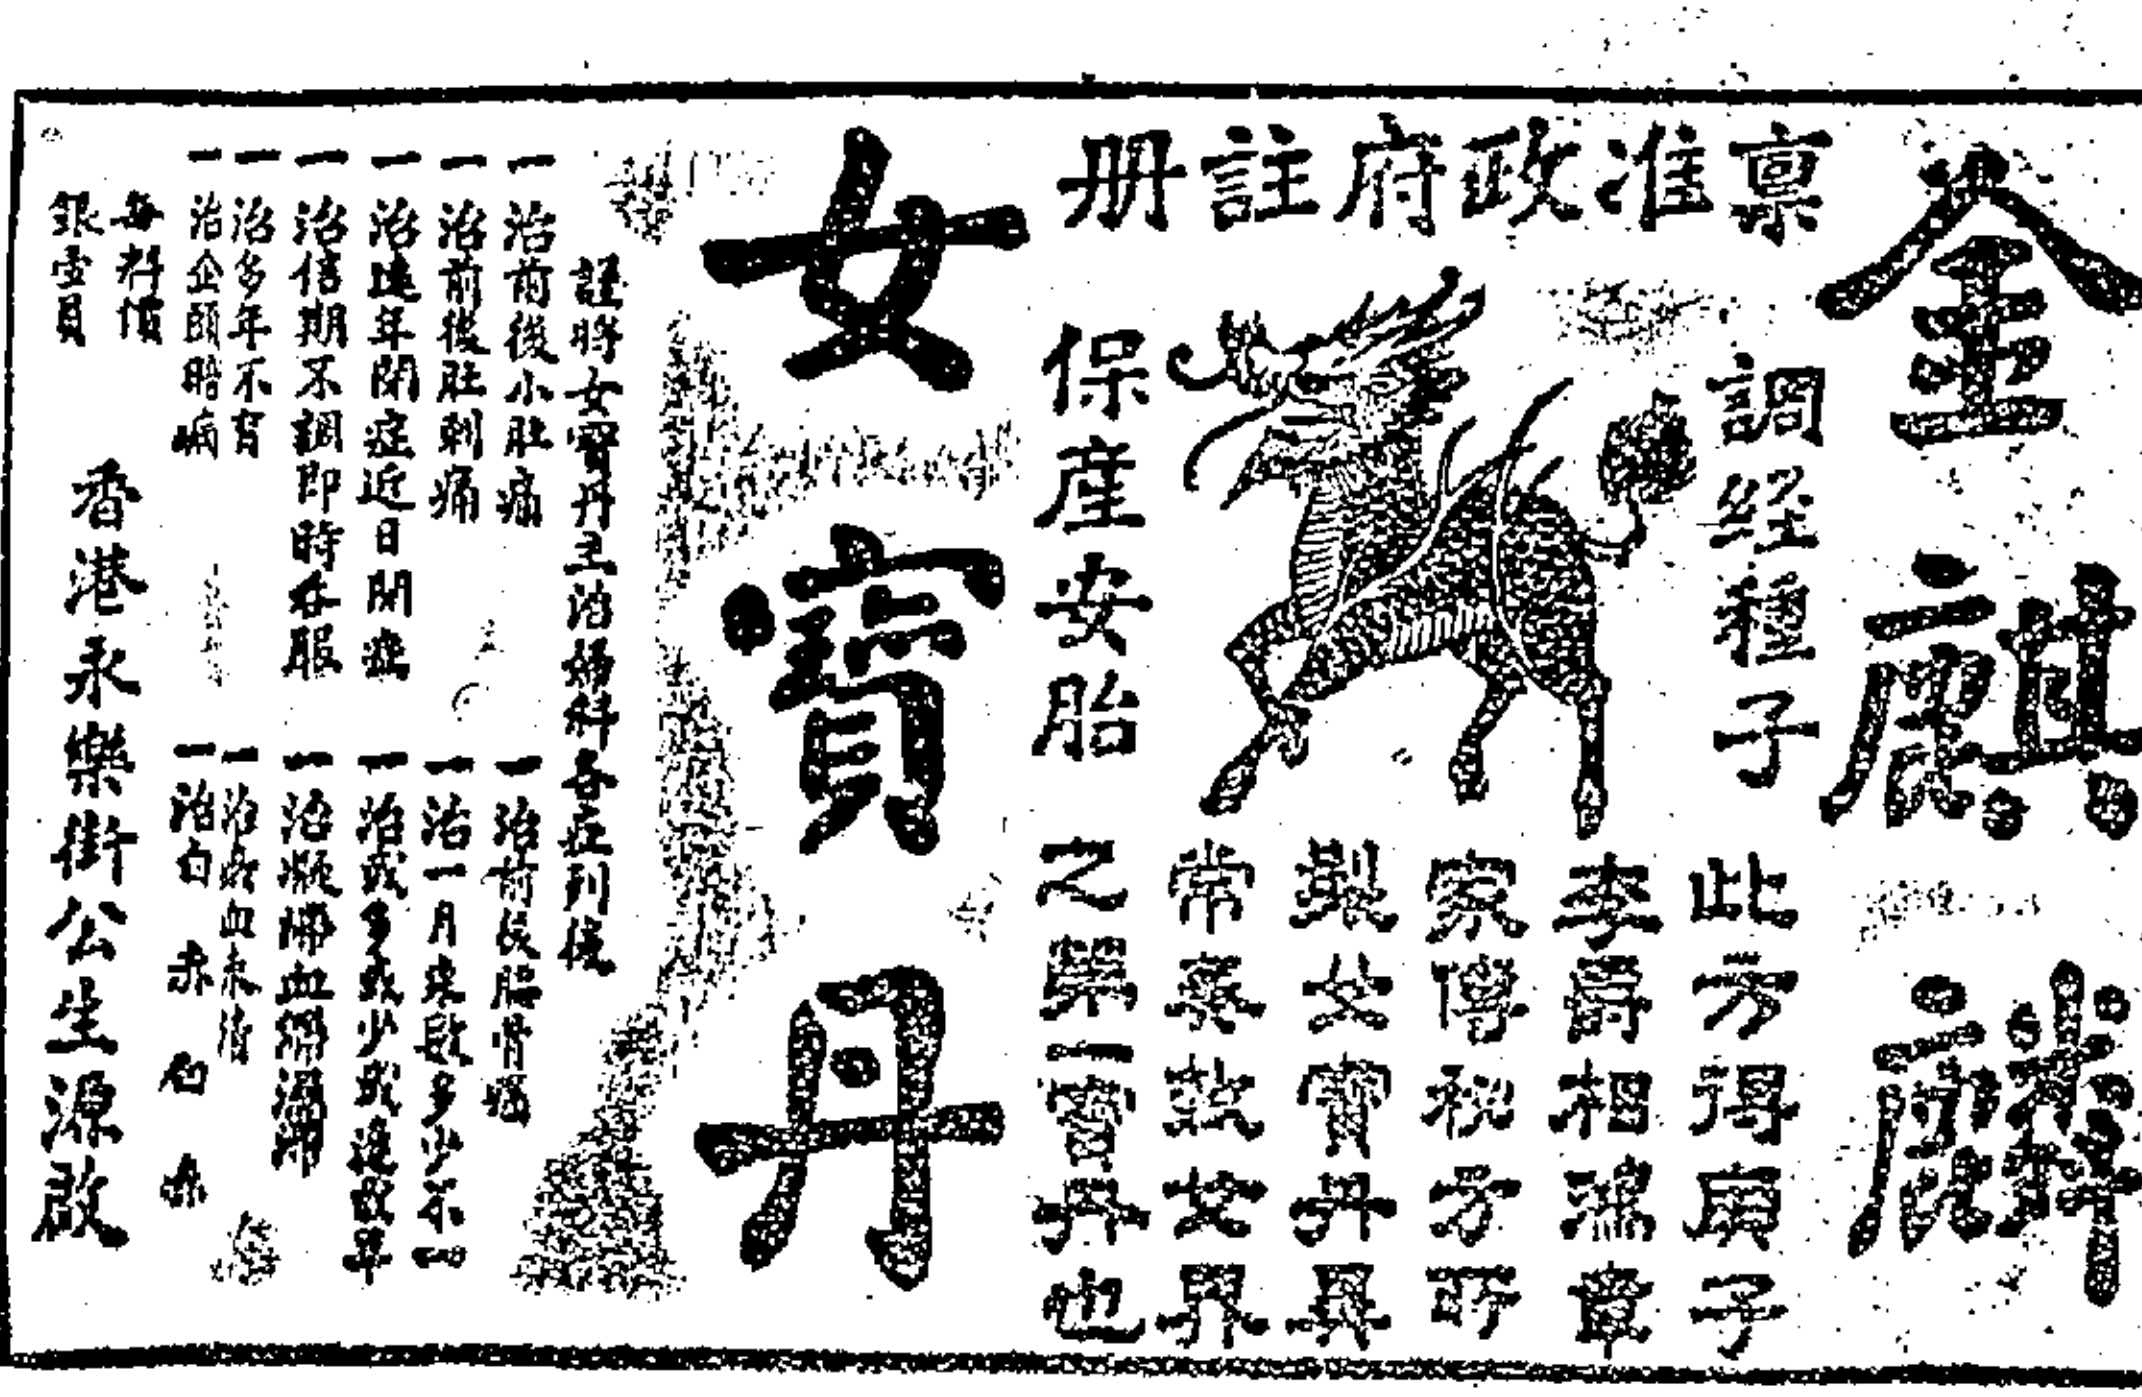 金麒麟
稟准政府註冊
調經種子
保產安胎
此方得庚子
李爵相鴻章
家傳秘方所
製女寶丹異
常寒效女界
之第一寶丹也
女寶丹
謹將女寶丹主治婦科各症列後
一治前後小肚痛
一治前後肚刺痛
一治遠年閉症近日閉症
一治信期不調即時吞服
一治多年不育
一治企頭暗病
一治前後腰骨痛
一治一月來數多少不一
一治或多或少或遲或早
一治凝滯血
一治血未清
一治白赤白赤
每料價
銀壹員
香港永樂街公生源啟